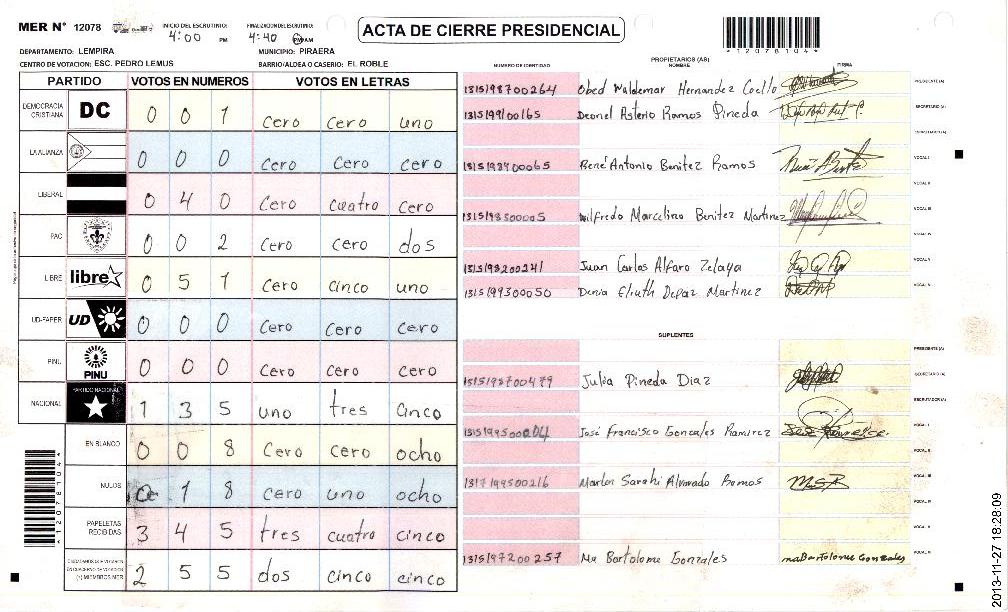 MER N° 12078
INICIO DEL ESCRUTINIO:
4:00 PM
FINALIZACION DEL ESCRUTINIO:
4:40 PM AM
ACTA DE CIERRE PRESIDENCIAL
*1207810 4*
DEPARTAMENTO: LEMPIRA
MUNICIPIO: PIRAERA
CENTRO DE VOTACION: ESC. PEDRO LEMUS
BARRIO/ALDEA O CASERIO: EL ROBLE
PARTIDO VOTOS EN NUMEROS VOTOS EN LETRAS
DEMOCRACIA CRISTIANA DC 0 0 1 cero cero uno
LA ALIANZA 0 0 0 cero cero cero
LIBERAL 0 4 0 cero cuatro cero
PAC 0 0 2 cero cero dos
LIBRE libre 0 5 1 cero cinco uno
UD-FAPER UD 0 0 0 cero cero cero
PINU PINU 0 0 0 cero cero cero
NACIONAL PARTIDO NACIONAL 1 3 5 uno tres cinco
EN BLANCO 0 0 8 cero cero ocho
NULOS 0 1 8 cero uno ocho
PAPELETAS RECIBIDAS 3 4 5 tres cuatro cinco
CIUDADANOS QUE VOTARON EN CUADERNO DE VOTACION (+) MIEMBROS MER 2 5 5 dos cinco cinco
PROPIETARIOS (AS)
NUMERO DE IDENTIDAD NOMBRE FIRMA
1315198700264 Obed Waldemar Hernandez Coello PRESIDENTE (A)
1315199100165 Deonel Asterio Ramos Pineda SECRETARIO (A)
ESCRUTADOR (A)
1315198400065 René Antonio Benitez Ramos VOCAL I
VOCAL II
1315198300005 Wilfredo Marcelino Benitez Martinez VOCAL III
VOCAL IV
1315198200241 Juan Carlos Alfaro Zelaya VOCAL V
1315199300050 Denia Eliuth Depaz Martinez VOCAL VI
SUPLENTES
PRESIDENTE (A)
1315198700479 Julia Pineda Diaz SECRETARIO (A)
ESCRUTADOR (A)
1315199500004 José Francisco Gonzales Ramirez VOCAL I
VOCAL II
1317199500216 Marlon Sarahi Alvarado Ramos VOCAL III
VOCAL IV
VOCAL V
1315197200257 Ma Bartolome Gonzales maBartolome Gonzales VOCAL VI
2013-11-27 18:28:09